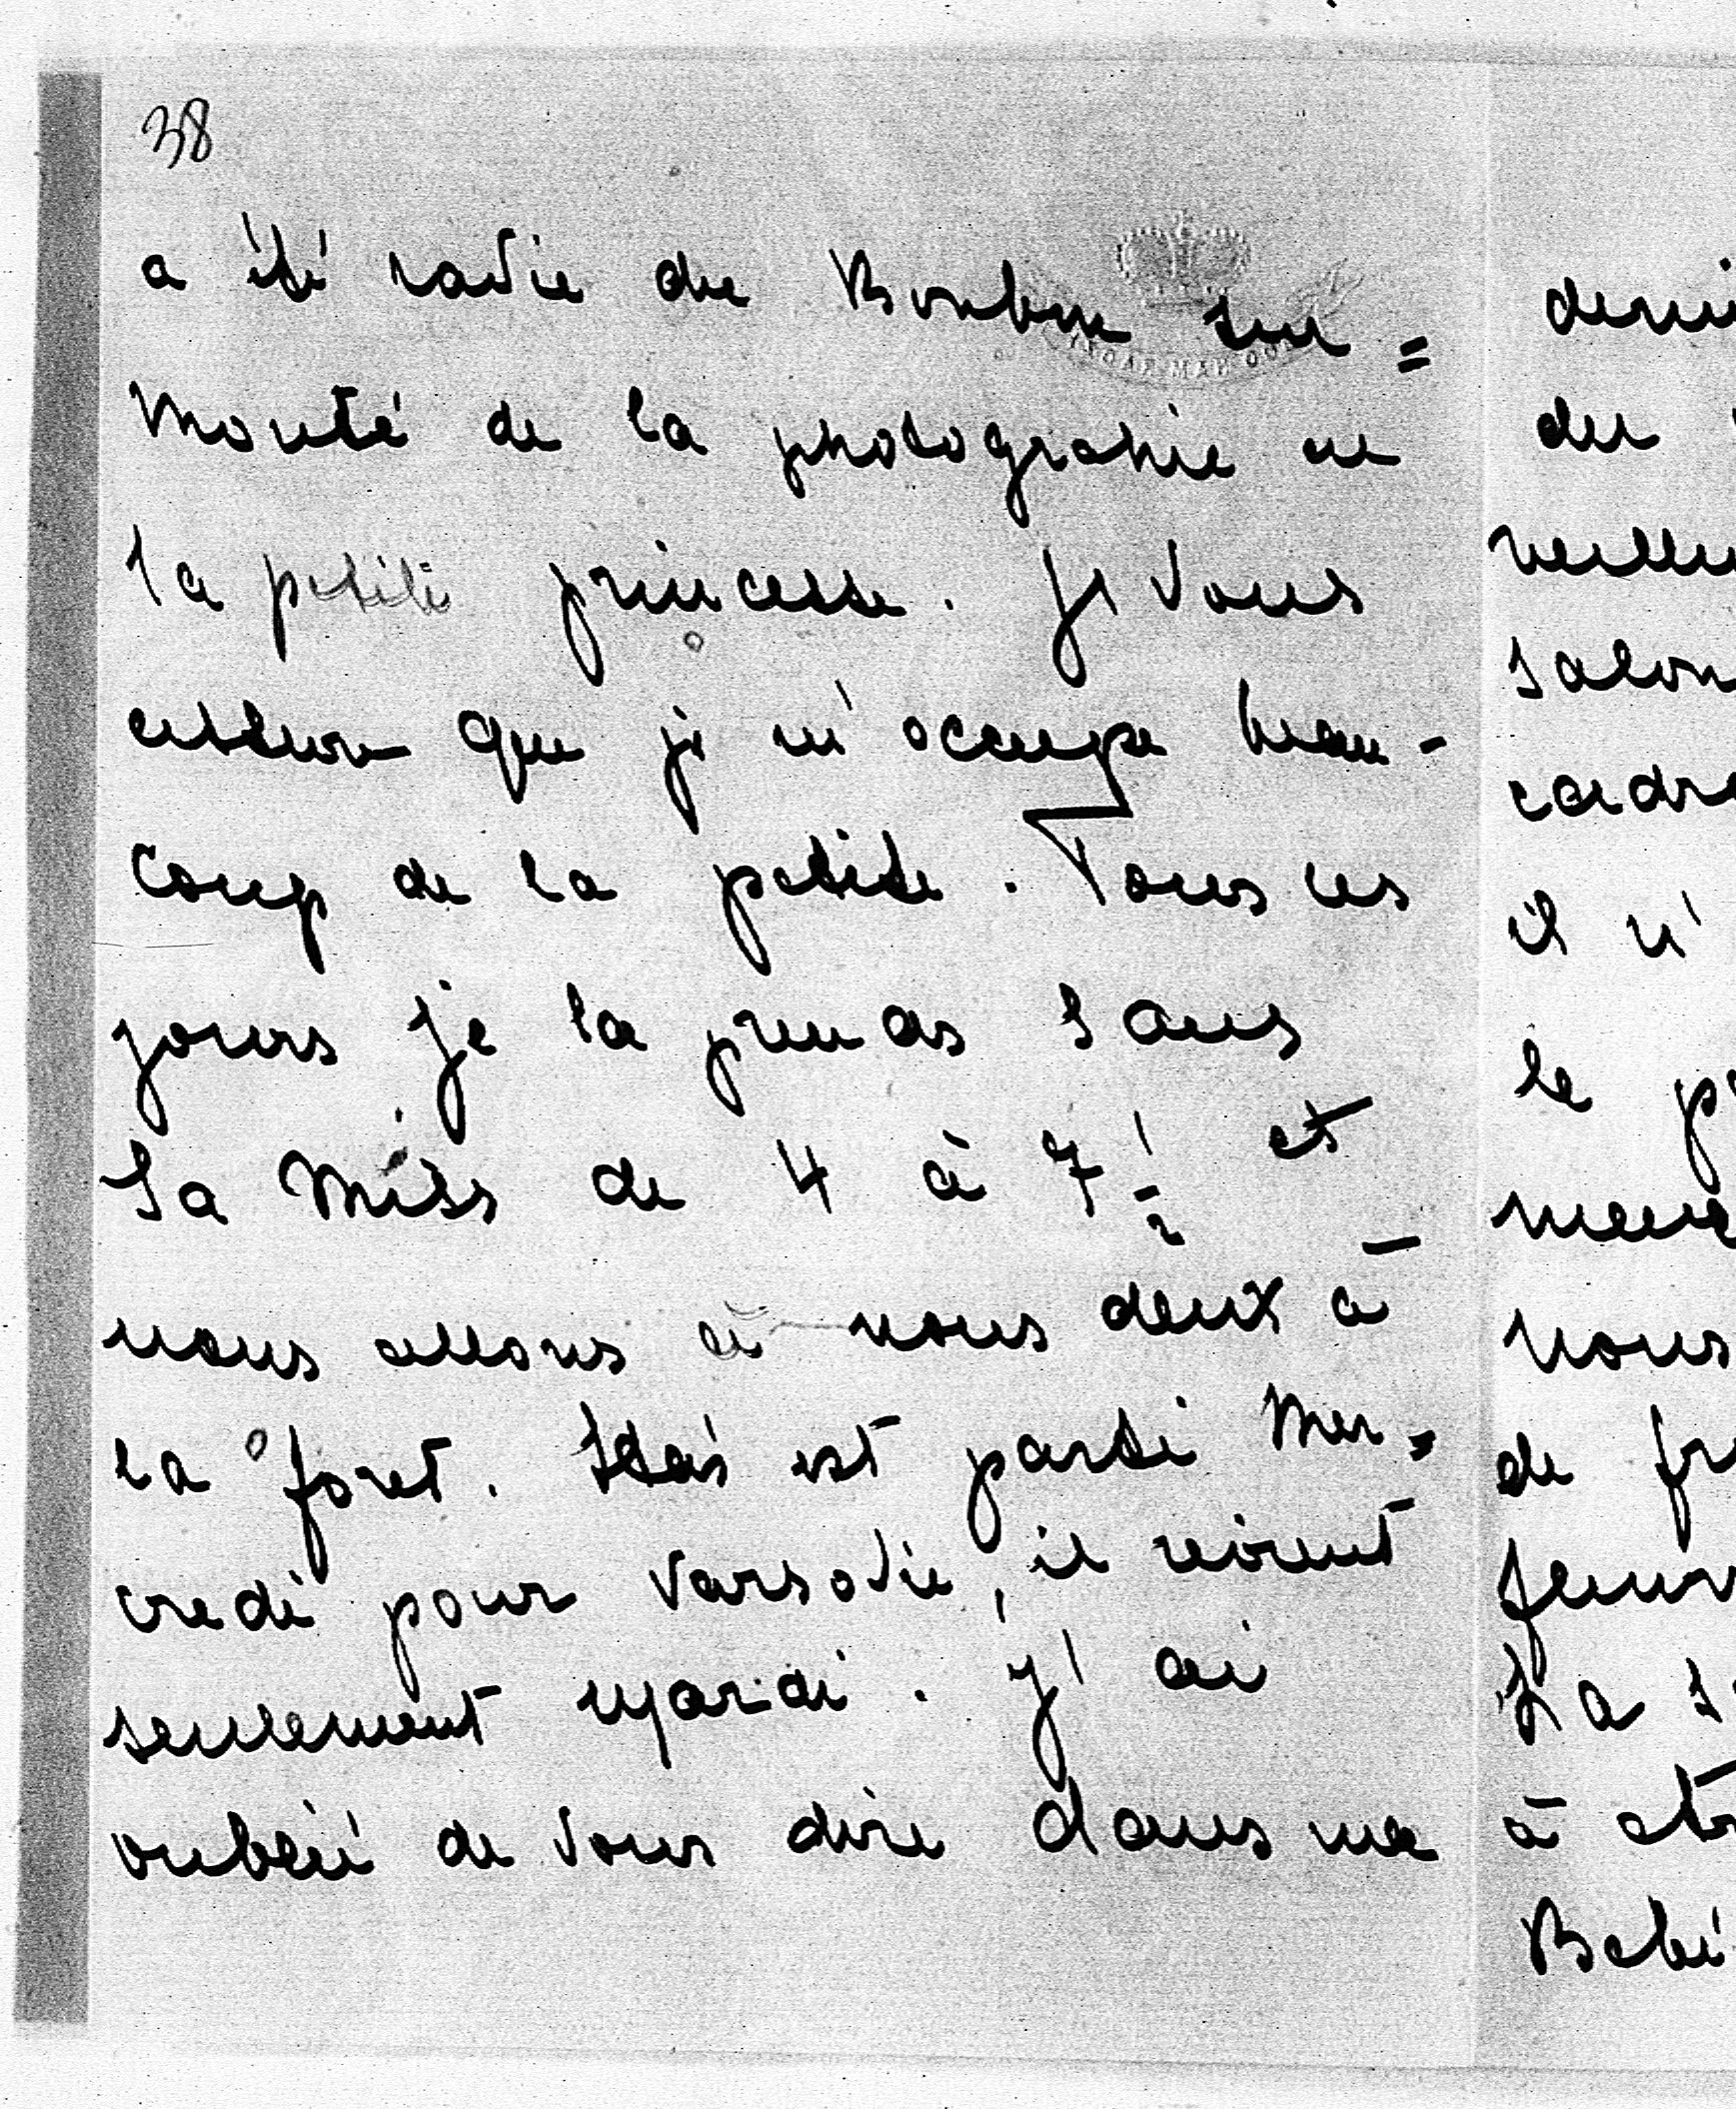 38
a été ravie du Bonbon sur=
monté de la photographie de
la petite princesse. Je vous
assure que je m'occupe beau-
coup de la petite. Tous les
jours je la prends sans
sa Miss de 4 à 7 1/2 et
nous allons à nous deux à
la foret. Stas est parti Mer=
credi pour Varsovie, il revient
seulement Mardi. J'ai
oublié de vous dire dans ma
salon
cadre
il n'
le
nous
de
La
à
Bebé